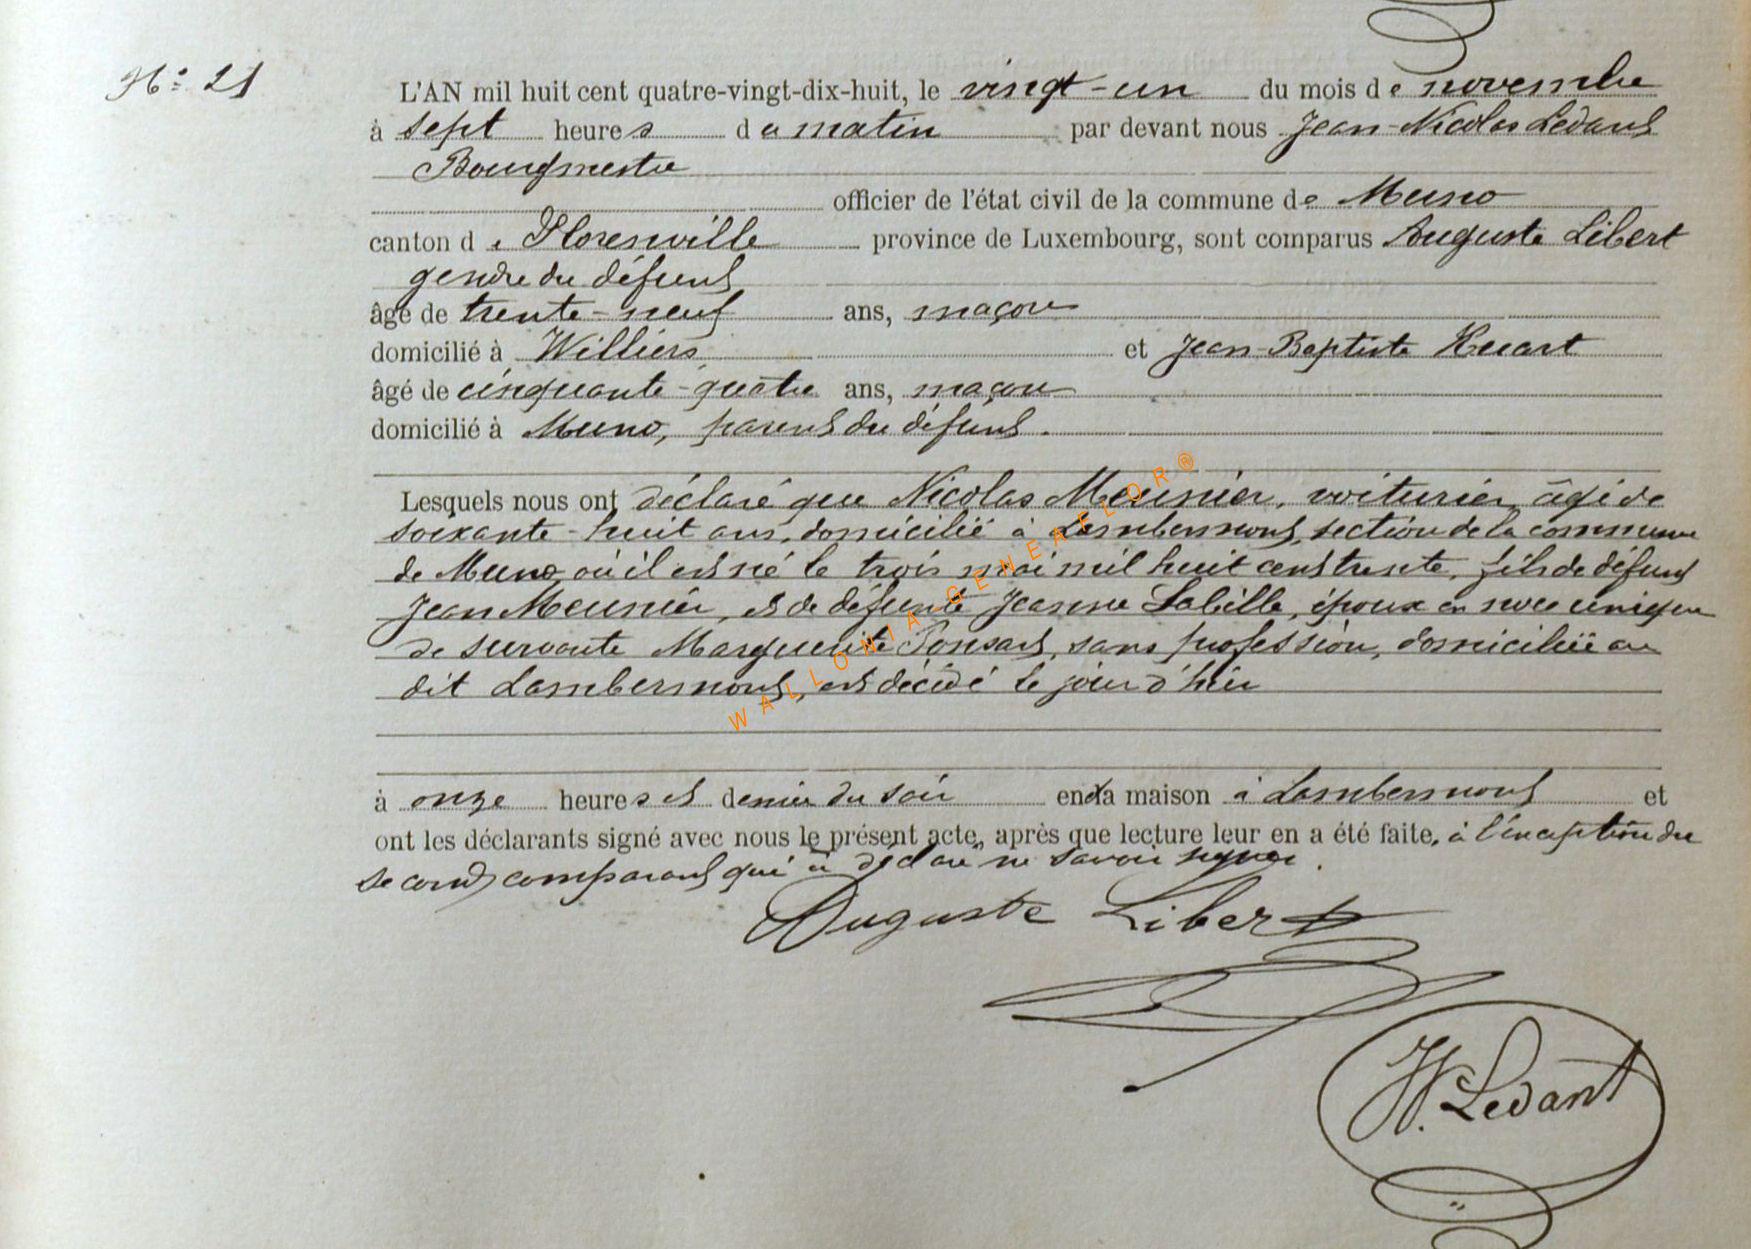 N° 21
L'AN mil huit cent quatre-vingt-dix-huit, le vingt-un du mois de novembre
à sept heures du matin par devant nous Jean-Nicolas Ledant
Bourgmestre
officier de l'état civil de la commune de Muno
canton de Florenville province de Luxembourg, sont comparus Auguste Libert
gendre du défunt
âgé de trente-neuf ans, maçon
domicilié à Williers et Jean-Baptiste Huart
âgé de cinquante-quatre ans, maçon
domicilié à Muno, parent du défunt.
Lesquels nous ont déclaré que Nicolas Meunier, voiturier, âgé de
soixante-huit ans, domicilié à Lambermont, section de la commune
de Muno, où il est né le trois mai mil huit cent trente, fils de défunt
Jean Meunier, et de défunte Jeanne Labille, époux en noce unique
de survivante Marguerite Ponsart, sans profession, domiciliée au
dit Lambermont, est décédé le jour d'hier
à onze heures et demie du soir en sa maison à Lambermont et
ont les déclarants signé avec nous le présent acte, après que lecture leur en a été faite, à l'exception du
second comparant qui a déclaré ne savoir signer.
Auguste Libert
N. Ledant
WALLONIA GENEAFLOR®